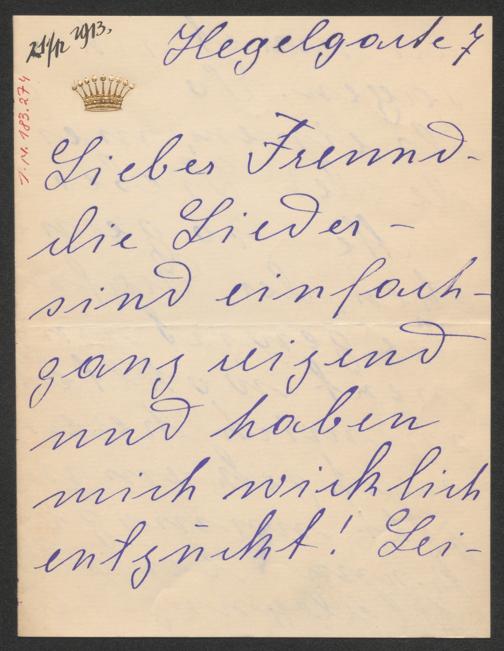 21/12 1913.
Hegelgasse 7
I.N. 183.274
Lieber Freund -
die Lieder -
sind einfach -
ganz reizend
und haben
mich wirklich
entzückt! Lei-